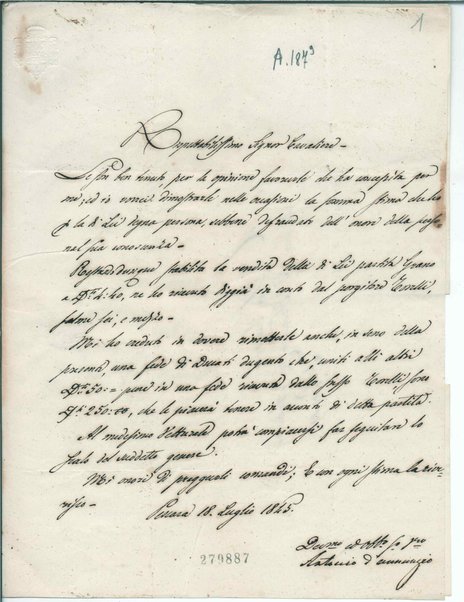 1
A. 187³
Rispettabilissimo Signor Cavaliere
Le son ben tenuto per la opinione favorevole che ha concepita per
me, ed io vorrei dimostrarle nelle occasioni la somma stima che ho
p la di Lei degna persona, sebbene defraudato dell' onore della perso
nal sua conoscenza
Restando dunque stabilita la vendita della di Lei partita Grano
a D.ti 2:40, ne ho ricevuti di già in conto dal porgitore Torelli,
salme sei, e mezzo
Mi ho creduto in dovere rimetterle anche, in seno della
presente, una fede di Ducati dugento che, uniti alli altri
D.ti 50 = pure in una fede ricevuta dallo stesso Torelli, sono
D.ti 250:00, che le piacerà tenere in conto di detta partita
Al medesimo Vetturale potrà compiacersi far seguitare lo
scalo del suddetto genere
Mi onori di pregevoli comandi; E con ogni stima la rive
risco
Pescara 18 Luglio 1845
279887
Antonio d'Annunzio